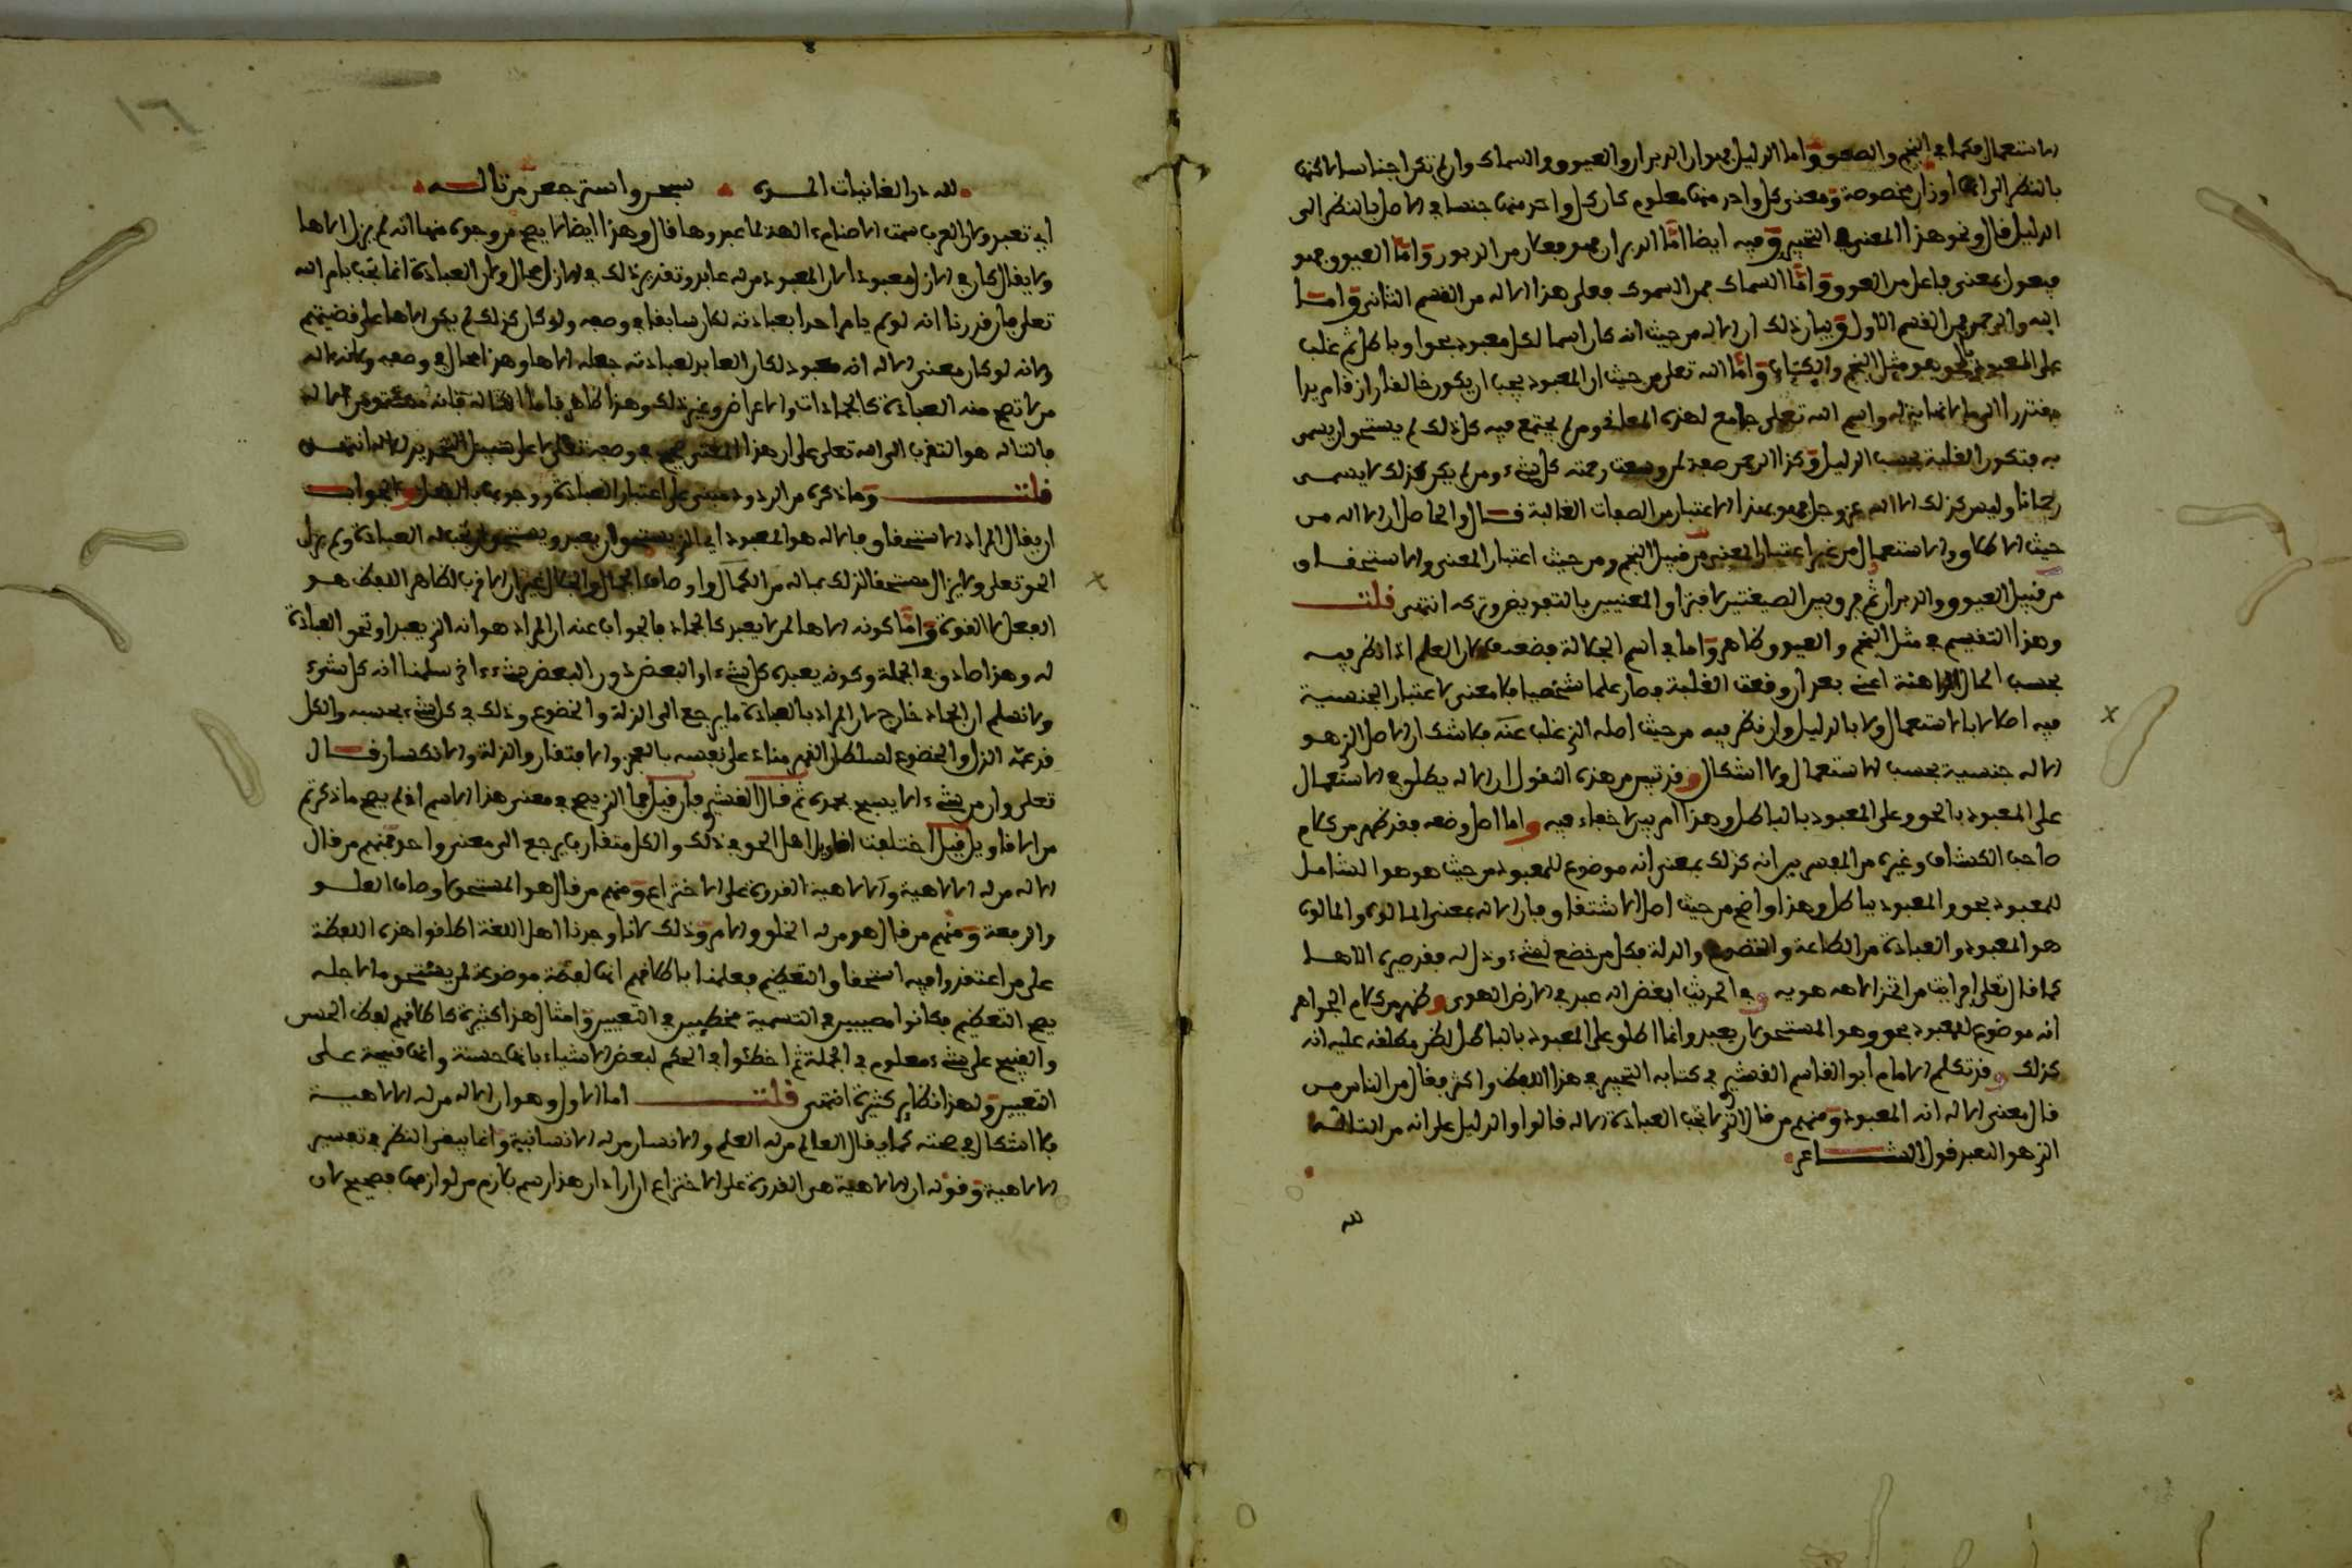 الاستعمال فكما في النجم والصعق واما الدليل فهو ان الدبران والعيوق والسماك وان لم تكن اجناسا لكنها
بالنظر الى انها اوزان مخصوصة ومعنى كل واحد منها معلوم كان كل واحد منها جنسا في الاصل بالنظر الى
الدليل قال ونحو هذا المعنى في التحبير وفيه ايضا امّا الدبران فهو فعلان من الدبور وامّا العيوق فهو
فيعول بمعنى فاعل من العوق وامّا السماك فمن السموك فعلى هذا الاله من القسم الثاني وامــا
الله والرحمن فمن القسم الاول وبيان ذلك ان الاله من حيث انه كان اسما لكل معبود بحق او باطل ثم غلب
على المعبود بالحق هو مثل النجم والكتاب وامّا الله تعلى من حيث ان المعبود يجب ان يكون خالقا رازقا مريدا
مقتدرا الى ما لا نهاية له واسم الله تعلى جامع لهذه المعاني ومن لم يجتمع فيه كل ذلك لم يستحق ان يسمى
به فتكون الغلبة بحسب الدليل وكذا الرحمن صفة لمن وسعت رحمته كل شيء ومن لم يكن كذلك لا يسمى
رحمانا وليس كذلك الا الله عز وجل فهو بهذا الاعتبار من الصفات الغالبة قــال والحاصل ان الاله من
حيث الاطلاق والاستعمال من غير اعتبار المعنى من قبيل النجم ومن حيث اعتبار المعنى والاستحقاق
من قبيل العيوق والدبران ثم فرق بين الصيغتين لافتراق المعنيين بالتعويض وتركه انتهى قلتــ
وهذا التقسيم في مثل النجم والعيوق ظاهر واما في اسم الجلالة فضعيف لان العلم اذا نظر فيه
بحسب الحال الراهنة اعني بعد ان وقعت الغلبة وصار علما شخصيا فلا معنى لاعتبار الجنسية
فيه اصلا لا بالاستعمال ولا بالدليل وان نظر فيه من حيث اصله الذي غلب عنه فلا شك ان الاصل الذي هو
الاله جنسية بحسب الاستعمال ولا اشكال وقد تبين من هذه النقول ان الاله يطلق في الاستعمال
على المعبود بالحق وعلى المعبود بالباطل وهذا امر بين لا خفاء فيه واما اصل وضعه فقد ظهر من كلام
صاحب الكشاف وغيره من المفسرين انه كذلك بمعنى انه موضوع للمعبود من حيث هو هو الشامل
للمعبود بحق والمعبود بباطل وهذا واضح من حيث اصل الاشتقاق فان الاله بمعنى المالوه والمالوه
هو المعبود والعبادة من الطاعة والخضوع والذلة فكل من خضع لشيء وذل له فقد صيره الاها
كما قال تعلى افرايت من اتخذ الاهه هويه وفي الحديث ابغض اله عبد في الارض الهوى وظهر من كلام الجواهر
انه موضوع للمعبود بحق وهو المستحق لان يعبد وانما اطلق على المعبود بالباطل لظن مطلقه عليه انه
كذلك وقد تكلم الامام ابو القاسم القشيري في كتابه التحبير في هذا اللفظ واكثر فقال من الناس من
قال معنى الاله انه المعبود ومنهم من قال الذي لا تجب العبادة الا له قالوا والدليل على انه من التاله
الذي هو التعبد قول الشــاعر
لله
لله در الغانيات المده سبحن واسترجعن من تاله
اي تعبد ولان العرب سمت الاصنام ءالهة لما عبدوها قال وهذا ايضا لا يصح من وجوه منها انه لم يزل الاها
ولا يقال كان في الازل معبودا لان المعبود من له عابد وتقدير ذلك في الازل محال ولان العبادة انما تجب بامر الله
تعلى فلو قدرنا انه لو لم يامر احدا بعبادته لكان سابغا في وصفه ولو كان كذلك لم يكن الاها على قضيتهم
ولانه لو كان معنى الاله انه معبود لكان العابد لعبادته جعله الاها وهذا محال في وصفه ولانه اله
من لا تصح منه العبادة كالجمادات والاعراض وغير ذلك وهذا ظاهر
فالتاله هو التقرب الى الله تعلى على ان هذا المعنى
قلتــ وما ذكره من الردود مبني على اعتبار العبادة ووجودها بالفعل والجواب
ان يقال المراد الاستحقاق فالاله هو المعبود اي الذي يستحق ان يعبد ويستحق ان تجب له العبادة ولم يزل
الحق تعلى ولا يزال مستحقا لذلك بما له من الكمال واوصاف الجمال والجلال غير ان الاقرب لظاهر اللفظ هو
الفعل لا القوة وامّا كونه الاها لمن لا يعبد كالجماد فالجواب عنه ان المراد هو انه الذي يعبد او تحق العبادة
له وهذا صادق في الجملة وكونه يعبده كل شيء او البعض دون البعض شيء ءاخر سلمنا انه كل شيء
ولا نسلم ان الجماد خارج لان المراد بالعبادة ما يرجع الى الذلة والخضوع وذلك في كل شيء بحسبه والكل
قد عمّه الذل والخضوع لسلطان القهر مناد على نفسه بالعجز والافتقار والذلة والانكسار قــال
تعلى وان من شيء الا يسبح بحمده ثم قال القشيري فان قيل فما الذي يصح في معنى هذا الاسم اذ لم يصح ما ذكرتم
من الاقاويل قيل اختلفت اقاويل اهل الحق في ذلك والكل متقارب يرجع الى معنى واحد فمنهم من قال
الاله من له الالاهية والالاهية القدرة على الاختراع ومنهم من قال هو المستحق لاوصاف العلــو
والرفعة ومنهم من قال هو من له الخلق والامر وذلك لانا وجدنا اهل اللغة اطلقوا هذه اللفظة
على من اعتقدوا فيه استحقاق التعظيم فعلمنا باطلاقهم انها لفظة موضوعة لمن يستحق ما لاجله
يصح التعظيم فكانوا مصيبين في التسمية مخطيين في التعيين وامثال هذا كثيرة كاطلاقهم لفظ الحسن
والقبيح على شيء معلوم في الجملة ثم اخطئوا في الحكم لبعض الاشياء بانها حسنة وانها قبيحة على
التعيين ولهذا نظاير كثيرة انتهى قلتــ اما الاول وهو ان الاله من له الالاهية
فلا اشكال في صحته كما يقال العالم من له العلم والانسان من له الانسانية وانما يبقى النظر في تفسير
الالاهية وقوله ان الالاهية هي القدرة على الاختراع ان اراد ان هذا رسم بلازم من لوازمها فصحيح لان
١٦